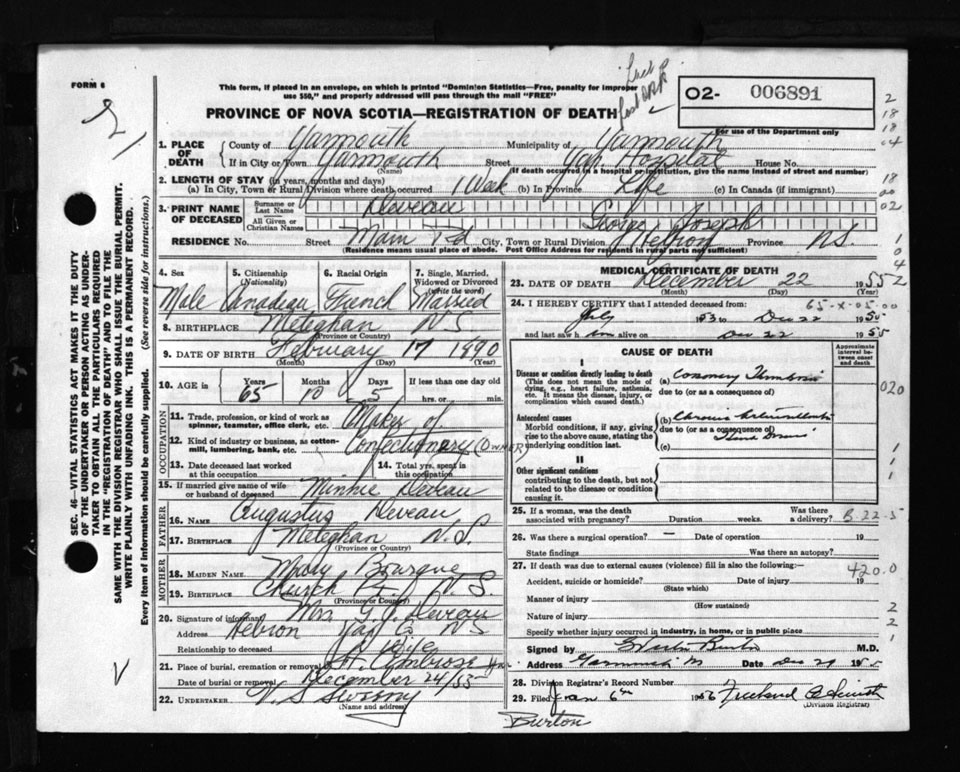 FORM 6
This form, if placed in an envelope, on which is printed "Dominion Statistics—Free, penalty for improper
use $50," and properly addressed will pass through the mail "FREE"
O2- 006891
PROVINCE OF NOVA SCOTIA—REGISTRATION OF DEATH
For use of the Department only
1. PLACE OF DEATH County of Yarmouth Municipality of Yarmouth
If in City or Town Yarmouth (Name) Street Yar. Hospital House No.
(If death occurred in a hospital or institution, give the name instead of street and number)
2. LENGTH OF STAY (in years, months and days)
(a) In City, Town or Rural Division where death occurred 1 Week (b) In Province Life (c) In Canada (if immigrant)
3. PRINT NAME OF DECEASED Surname or Last Name Deveau
All Given or Christian Names George Joseph
RESIDENCE No. Street Main Rd. City, Town or Rural Division Hebron Province N.S.
(Residence means usual place of abode. Post Office Address for residents in rural parts not sufficient)
4. Sex Male
5. Citizenship (Nationality) Canadian
6. Racial Origin French
7. Single, Married, Widowed or Divorced (Write the word) Married
8. BIRTHPLACE Meteghan N.S.
(Province or Country)
9. DATE OF BIRTH February 17 1890
(Month) (Day) (Year)
10. AGE in Years 65 Months 10 Days 5 If less than one day old hrs. or min.
OCCUPATION
11. Trade, profession, or kind of work as spinner, teamster, office clerk, etc. Maker of
12. Kind of industry or business, as cotton-mill, lumbering, bank, etc. Confectionary (OWNER)
13. Date deceased last worked at this occupation
14. Total yrs. spent in this occupation
15. If married give name of wife or husband of deceased Minnie Deveau
FATHER
16. NAME Augustus Deveau
17. BIRTHPLACE Meteghan N.S.
(Province or Country)
MOTHER
18. MAIDEN NAME Mary Bourque
19. BIRTHPLACE Church Pt. N.S.
(Province or Country)
20. Signature of informant Mrs. G. J. Deveau
Address Hebron Yar Co NS
Relationship to deceased Wife
21. Place of burial, cremation or removal St. Ambrose
Date of burial or removal December 24/55
22. UNDERTAKER V. S. Sweeny
(Name and address)
MEDICAL CERTIFICATE OF DEATH
23. DATE OF DEATH December 22 1955
(Month) (Day) (Year)
24. I HEREBY CERTIFY that I attended deceased from: 65-X-05-00
July 1953 to Dec 22 1955
and last saw h im alive on Dec 22 1955
CAUSE OF DEATH
Approximate interval between onset and death
I
Disease or condition directly leading to death
(This does not mean the mode of dying, e.g., heart failure, asthenia, etc. It means the disease, injury, or complication which caused death.)
(a) Coronary Thrombosis
due to (or as a consequence of)
Antecedent causes
Morbid conditions, if any, giving rise to the above cause, stating the underlying condition last.
(b) Chronic
due to (or as a consequence of)
(c)
II
Other significant conditions
contributing to the death, but not related to the disease or condition causing it.
25. If a woman, was the death associated with pregnancy? Duration weeks. Was there a delivery? B-22-5
26. Was there a surgical operation? — Date of operation 19
State findings Was there an autopsy?
27. If death was due to external causes (violence) fill in also the following:- 420.0
Accident, suicide or homicide? Date of injury 19
(State which)
Manner of injury
(How sustained)
Nature of injury
Specify whether injury occurred in industry, in home, or in public place
Signed by M.D.
Address Yarmouth Date Dec 29 1955
28. Division Registrar's Record Number
29. Filed Jan 6th 1956
(Division Registrar)
Burton
SEC. 46 VITAL STATISTICS ACT MAKES IT THE DUTY
OF THE UNDERTAKER OR PERSON ACTING AS UNDER-
TAKER TO OBTAIN ALL THE PARTICULARS REQUIRED
IN THE "REGISTRATION OF DEATH" AND TO FILE THE
SAME WITH THE DIVISION REGISTRAR WHO SHALL ISSUE THE BURIAL PERMIT.
WRITE PLAINLY WITH UNFADING INK. THIS IS A PERMANENT RECORD.
Every item of information should be carefully supplied. (See reverse side for instructions.)
2
18
18
04
18
00
02
1
0
4
2
020
1
1
1
2
2
1